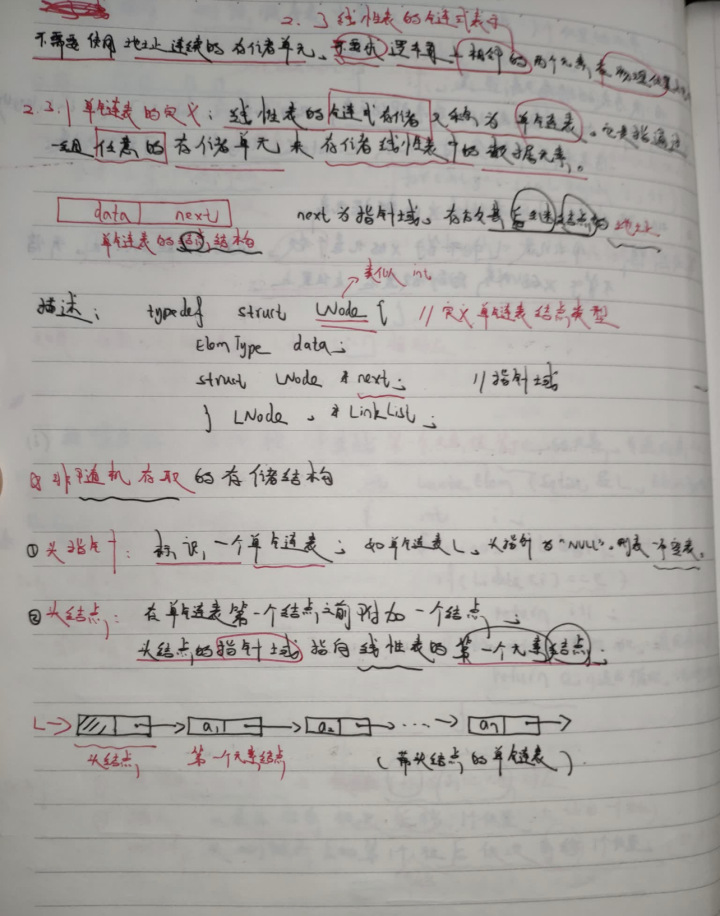 2.3 线性表的链式表示
不需要使用地址连续的存储单元,不要求逻辑上相邻的两个元素,在物理位置上
2.3.1 单链表的定义:线性表的链式存储又称为单链表。它是指通过
一组任意的存储单元来存储线性表中的数据元素。
data next
next为指针域,存放其后继结点的地址.
单链表的结点结构
类似 int
描述: typedef struct LNode { //定义单链表结点类型
ElemType data;
struct LNode *next; //指针域
} LNode, *LinkList;
非随机存取的存储结构
①头指针: 标识一个单链表; 如单链表L,头指针为"NULL",则表示空表.
②头结点: 在单链表第一个结点之前附加一个结点,
头结点的指针域指向线性表的第一个元素结点;
L→ a1 a2 ... an
头结点 第一个元素结点 (带头结点的单链表)